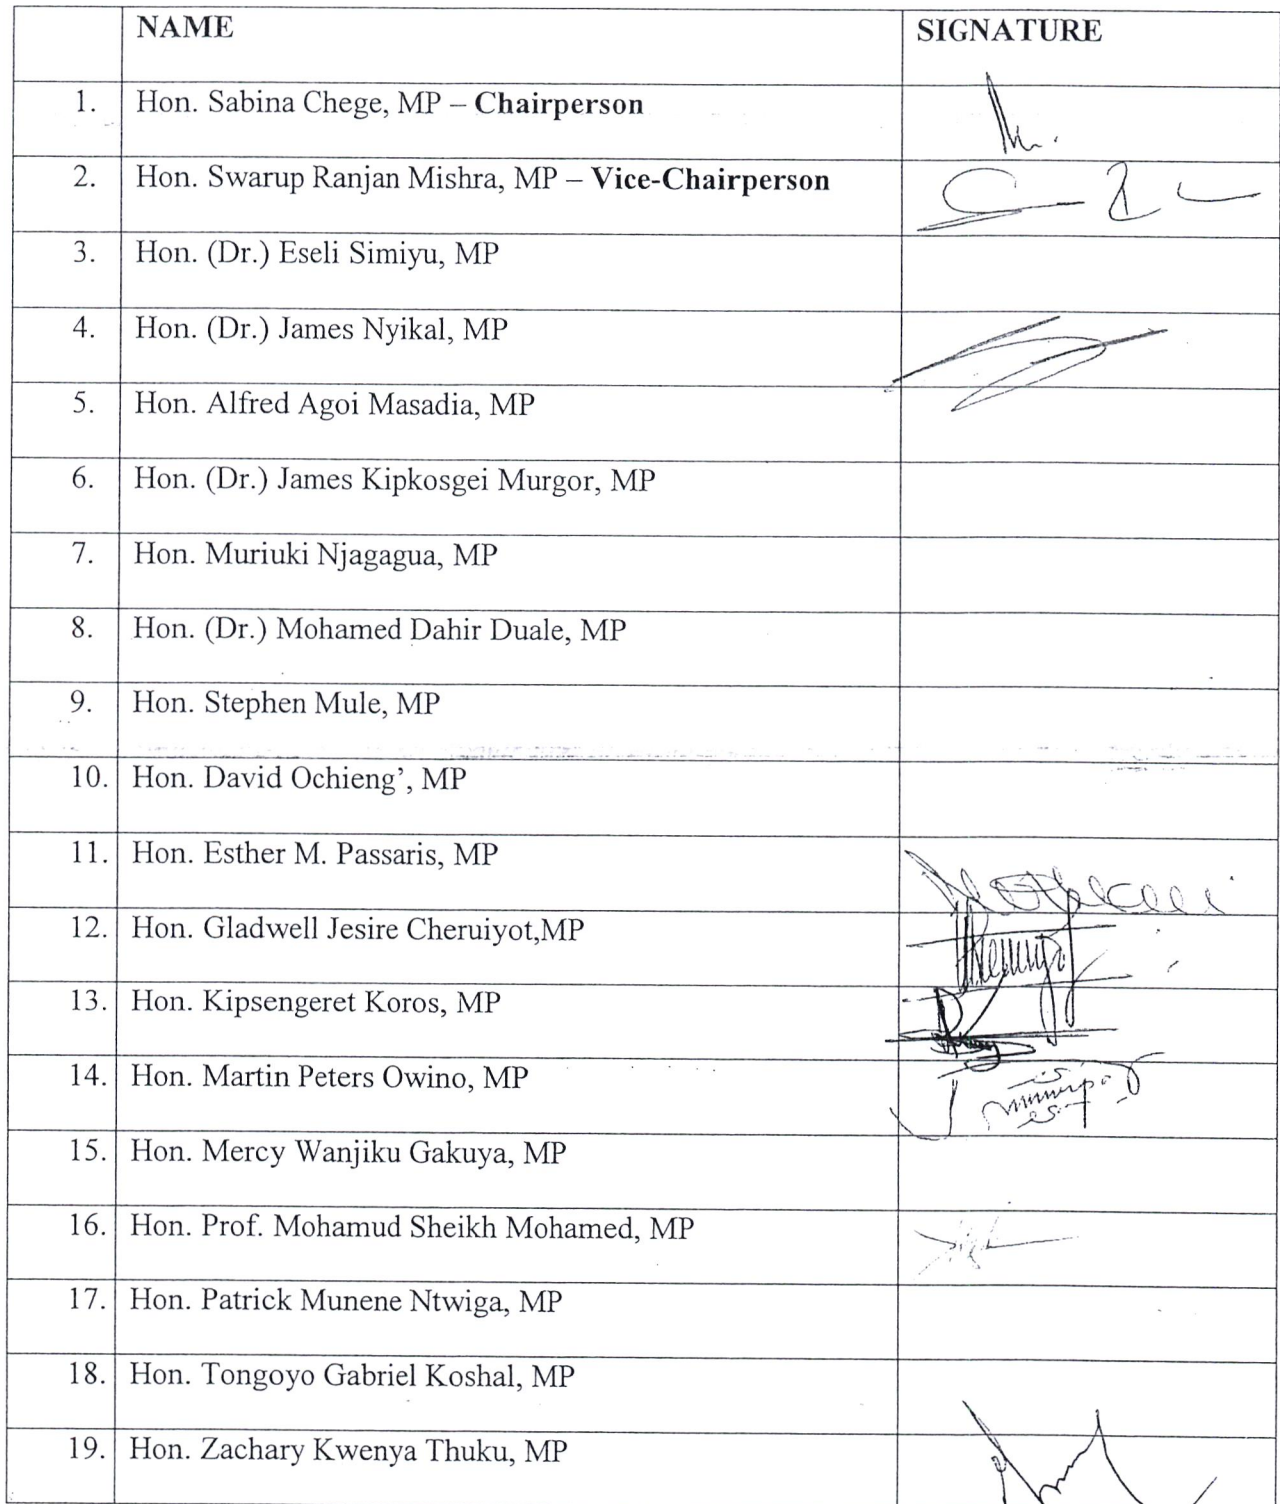 NAME SIGNATURE
1. Hon. Sabina Chege, MP – Chairperson
2. Hon. Swarup Ranjan Mishra, MP – Vice-Chairperson
3. Hon. (Dr.) Eseli Simiyu, MP
4. Hon. (Dr.) James Nyikal, MP
5. Hon. Alfred Agoi Masadia, MP
6. Hon. (Dr.) James Kipkosgei Murgor, MP
7. Hon. Muriuki Njagagua, MP
8. Hon. (Dr.) Mohamed Dahir Duale, MP
9. Hon. Stephen Mule, MP
10. Hon. David Ochieng’, MP
11. Hon. Esther M. Passaris, MP
12. Hon. Gladwell Jesire Cheruiyot,MP
13. Hon. Kipsengeret Koros, MP
14. Hon. Martin Peters Owino, MP
15. Hon. Mercy Wanjiku Gakuya, MP
16. Hon. Prof. Mohamud Sheikh Mohamed, MP
17. Hon. Patrick Munene Ntwiga, MP
18. Hon. Tongoyo Gabriel Koshal, MP
19. Hon. Zachary Kwenya Thuku, MP